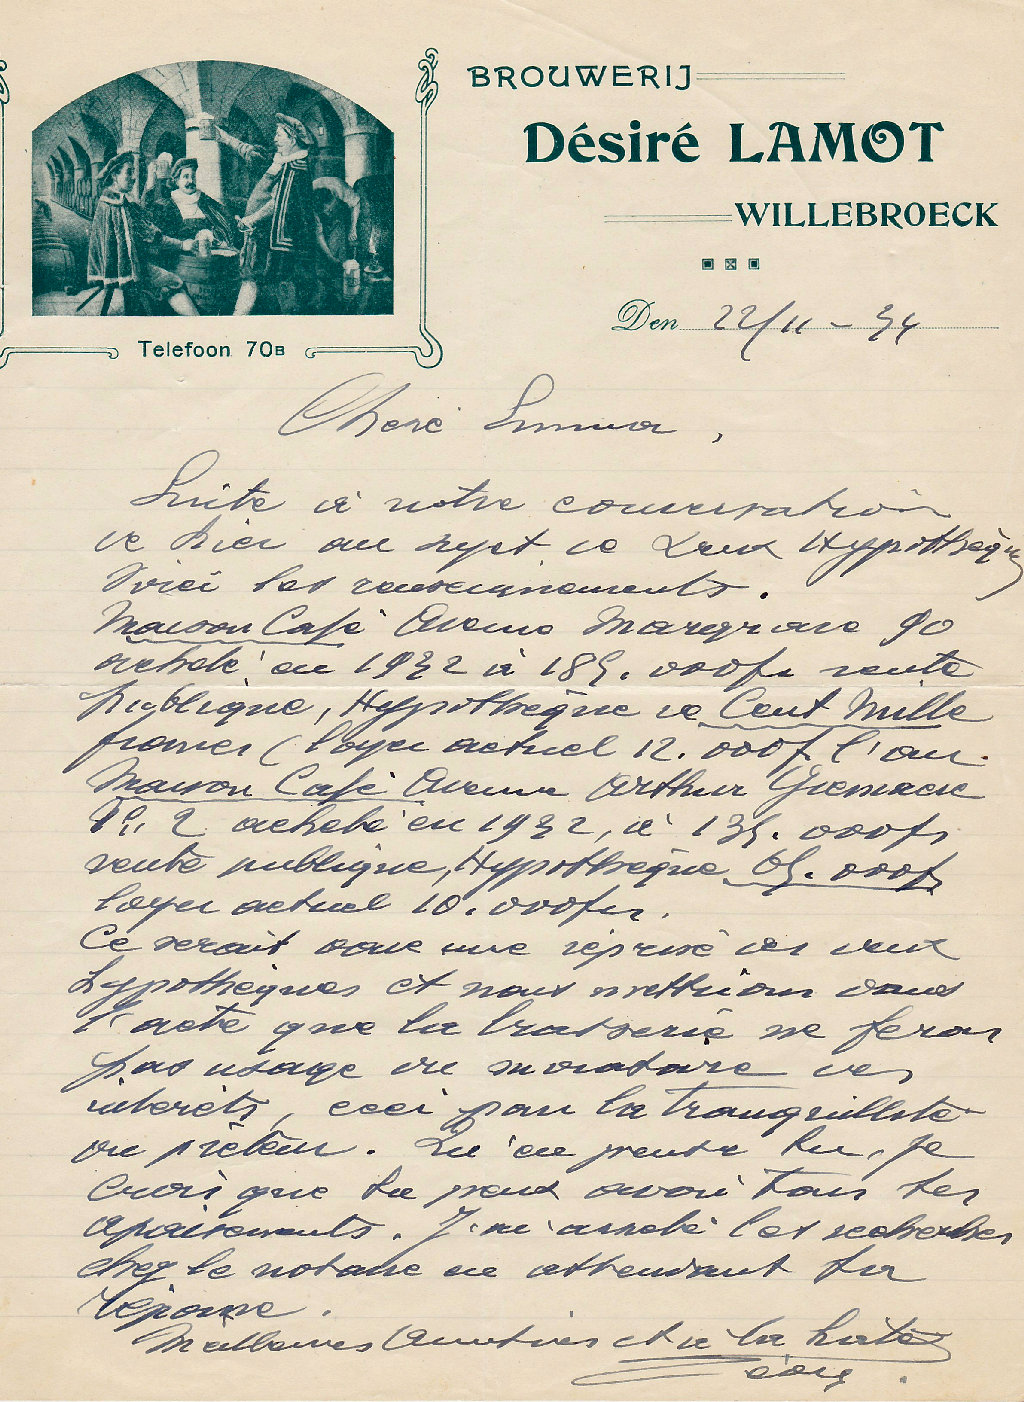 BROUWERIJ
Désiré LAMOT
WILLEBROECK
Den 22/11 - 34
Telefoon 70B
Cheré Emma,
Suite à notre conversation
de hier au sujet de deux Hypothèques
voici les renseignements.
Maison Café Avenue Margrave 90
acheté en 1932 à 185.000fr vente
publique, Hypothèque de Cent Mille
francs (loyer actuel 12.000f l'an.
Maison Café Avenue Arthur
No. 2 acheté en 1932, à 135.000fr
vente publique, Hypothèque 65.000f
loyer actuel 10.000frs.
Ce serait donc une réprise des deux
hypothèques et nous mettrions dans
l'acte que la brasserie ne feras
pas usage du moratoire des
interêts, ceci pour la tranquillité
du prêteur. Qu'en pense tu, je
crois que tu peux avoir tous tes
apaisements. J'ai arreté les recherches
chez le notaire en attendant ta
réponse.
Meilleures Amitiés et à la hâte